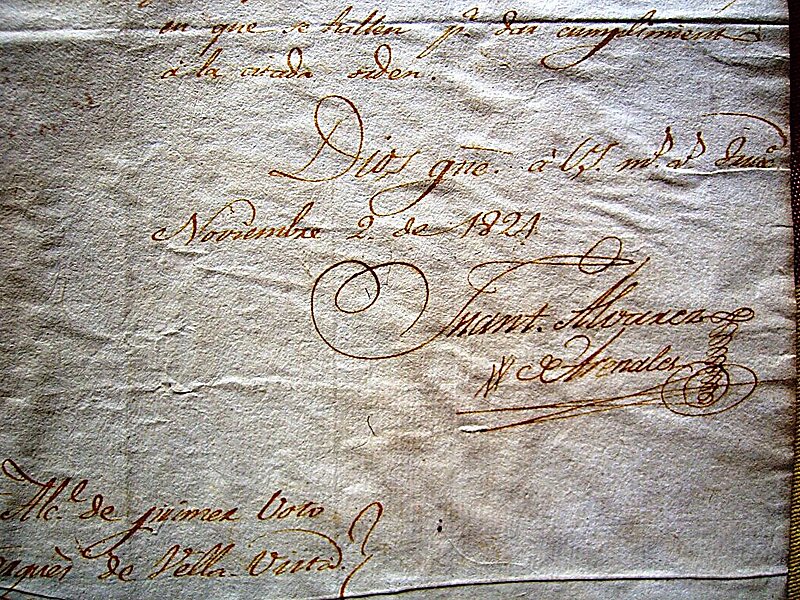 en que se hallen pª dar cumplimiento
à la citada orden.
Dios gue. à VS. ms. as.
Noviembre 2. de 1821
Juan Ant. Alvarez
de Arenales
Alce. de primer Voto
de Vella-Vista.